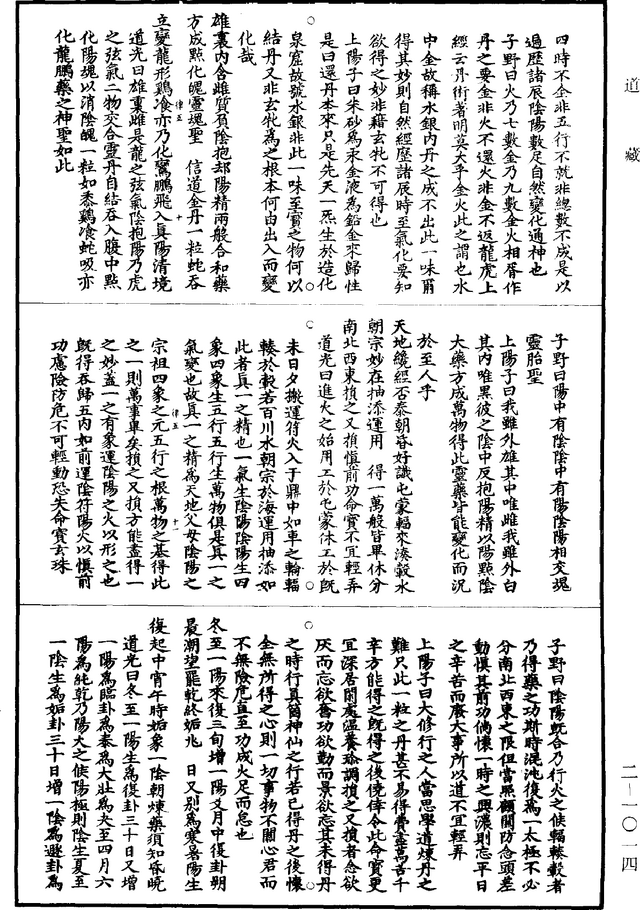 道藏
四時不全非五行不就非總數不成是以
遍歷諸辰陰陽數足自然變化通神也
子野曰火乃七數金乃九數金火相胥作
丹之要金非火不還火非金不返龍虎上
經云丹術著明莫大乎金火此之謂也水
中金故稱水銀內丹之成不出此一味爾
得其妙則自然經歷諸辰時至氣化要知
欲得之妙非藉玄牝不可得也
上陽子曰朱砂為汞金液為鉛金來歸性
是曰還丹本來只是先天一炁生於造化
泉窟故號水銀非此一味至寶之物何以
結丹又非玄牝為之根本何由出入而變
化哉
雄裏內含雌質負陰抱却陽精兩般合和藥
方成點化魄靈魂聖　信道金丹一粒蛇吞
立變龍形鷄飡亦乃化鸞鵬飛入真陽清境
律五　十
道光曰雄裏雌是龍之弦氣陰抱陽乃虎
之弦氣二物交合靈丹自結吞入腹中點
化陽魂以消陰魄一粒如黍鷄飡蛇吸亦
化龍鵬藥之神聖如此
子野曰陽中有陰陰中有陽陰陽相交魂
靈胎聖
上陽子曰我雖外雄其中唯雌我雖外白
其內唯黑彼之陰中反抱陽精以陽點陰
大藥方成萬物得此靈藥皆能變化而況
於至人乎
天地纔經否泰朝昏好識屯蒙輻來湊轂水
朝宗妙在抽添運用　得一萬般皆畢休分
南北西東損之又損慎前功命寶不宜輕弄
道光曰進火之始用工於屯蒙休工於既
未日夕搬運符火入于鼎中如車之輪輻
輳於轂若百川水朝宗於海運用抽添如
此者真一之精也一氣生陰陽陰陽生四
象四象生五行五行生萬物俱是真一之
氣變也故真一之精為天地父母陰陽之
宗祖四象之元五行之根萬物之基得此
律五　十一
之一則萬事畢矣損之又損方能盡得一
之妙蓋一之有象運陰陽之火以形之也
既得吞歸五內如前運陰符陽火以慎前
功慮險防危不可輕動恐失命寶玄珠
子野曰陰陽既合乃行火之候輻輳轂者
乃得藥之功斯時混沌復為一太極不必
分南北西東之限但當照顧關防念頭差
動慎其前功倘懷一時之興濃則忘平日
之辛苦而廢大事所以道不宜輕弄
上陽子曰大修行之人當思學道煉丹之
難只此一粒之丹甚不易得費盡萬苦千
辛方能得之既得之後僥倖全此命寶更
宜深居閒處溫養珍調損之又損者念欲
厌而忘欲奮功欲勤而景欲忘其未得丹
之時行真箇神仙之行若已得丹之後懷
全無所得之心則一切事物不關心君而
不無險危直至功成火足而怠也
冬至一陽來復三旬增一陽爻月中復卦朔
晨潮望罷乾終姤兆　日又別為寒暑陽生
復起中宵午時姤象一陰朝煉藥須知昏曉
道光曰冬至一陽生為復卦三十日又增
一陽為臨卦為泰為大壯為夬至四月六
陽為純乾乃陽火之候陽極則陰生夏至
一陰生為姤卦三十日增一陰為遯卦為
二－一〇一四